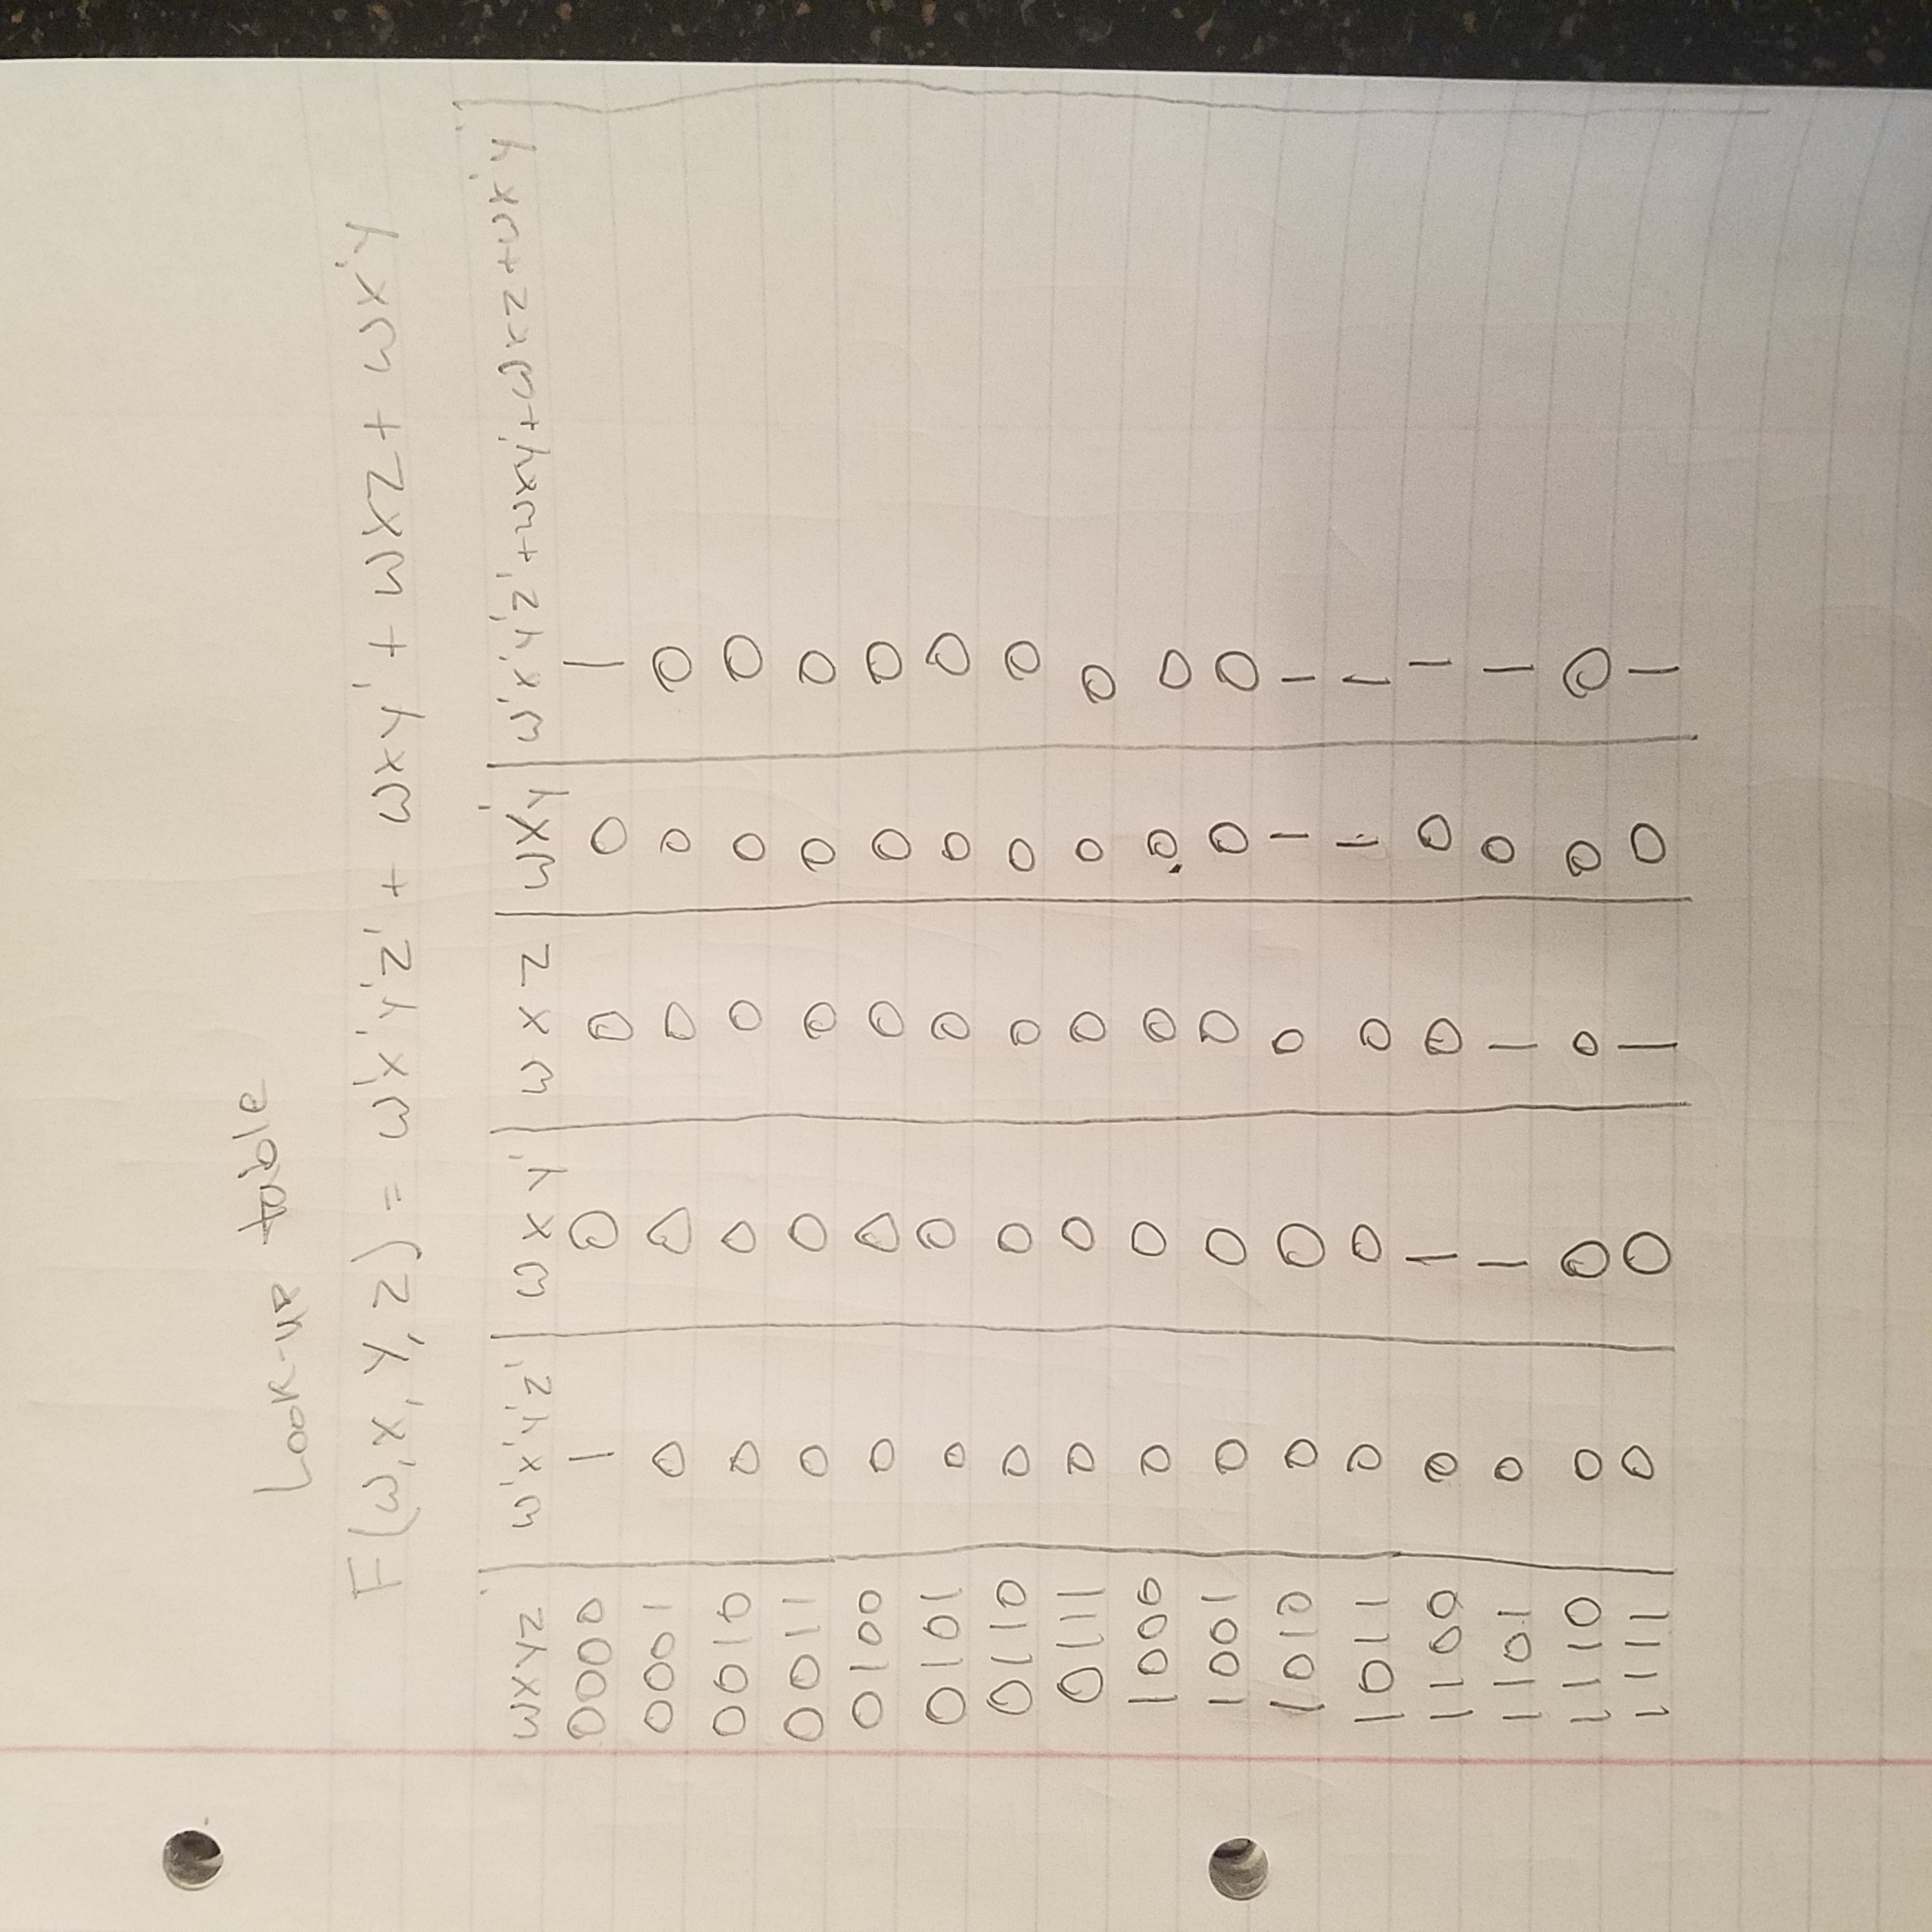 Look-up table
F(w, x, y, z) = w'x'y'z' + wxy' + wxz + wx'y
wxyz | w'x'y'z' | wxy' | wxz | wx'y | w'x'y'z' + wxy' + wxz + wx'y
0000 | 1 | 0 | 0 | 0 | 1
0001 | 0 | 0 | 0 | 0 | 0
0010 | 0 | 0 | 0 | 0 | 0
0011 | 0 | 0 | 0 | 0 | 0
0100 | 0 | 0 | 0 | 0 | 0
0101 | 0 | 0 | 0 | 0 | 0
0110 | 0 | 0 | 0 | 0 | 0
0111 | 0 | 0 | 0 | 0 | 0
1000 | 0 | 0 | 0 | 0 | 0
1001 | 0 | 0 | 0 | 0 | 0
1010 | 0 | 0 | 0 | 1 | 1
1011 | 0 | 0 | 0 | 1 | 1
1100 | 0 | 1 | 0 | 0 | 1
1101 | 0 | 1 | 1 | 0 | 1
1110 | 0 | 0 | 0 | 0 | 0
1111 | 0 | 0 | 1 | 0 | 1